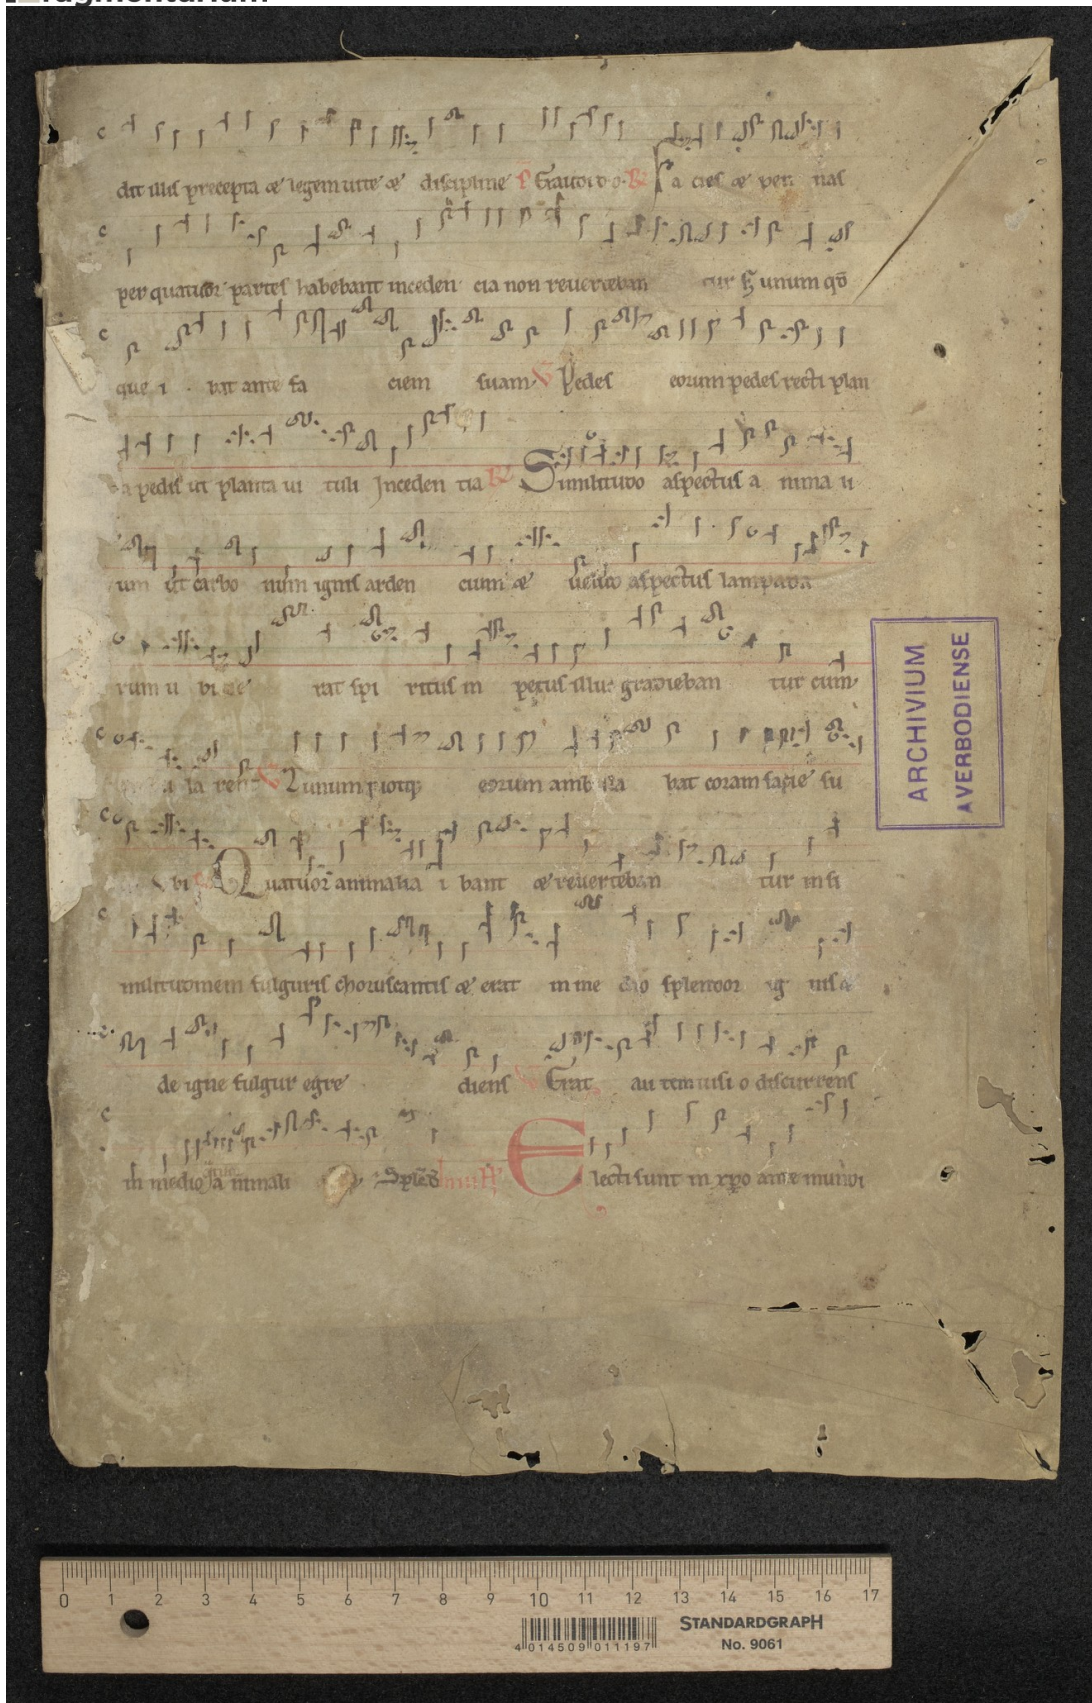 ragmentarium
dit illis precepta & legem uite & discipline Gaudio a cies & pen nas
per quatuor partes habebant inceden cia non reuerteban tur unum
que i bat ante fa ciem suam Pedes eorum pedes recti plan
a pedis ut planta ui tuli Inceden tia Similitudo aspectus a nima li
um ut carbo num ignis arden cium & aspectus lampada
rum u bi rat spi ritus in petus illuc gradieban tur cum
unum eorum ambula bat coram facie su
bi Quatuor animalia i bant & reuerteban tur in si
militudinem fulguris choruscantis & erat in me dio splendor ig nis &
de igne fulgur egre diens Erat au tem uisi o discurrens
in medio a nimali Splen Electi sunt in xpo ante mundi
ARCHIVIUM
AVERBODIENSE
0 1 2 3 4 5 6 7 8 9 10 11 12 13 14 15 16 17
STANDARDGRAPH
No. 9061
4 014509 011197